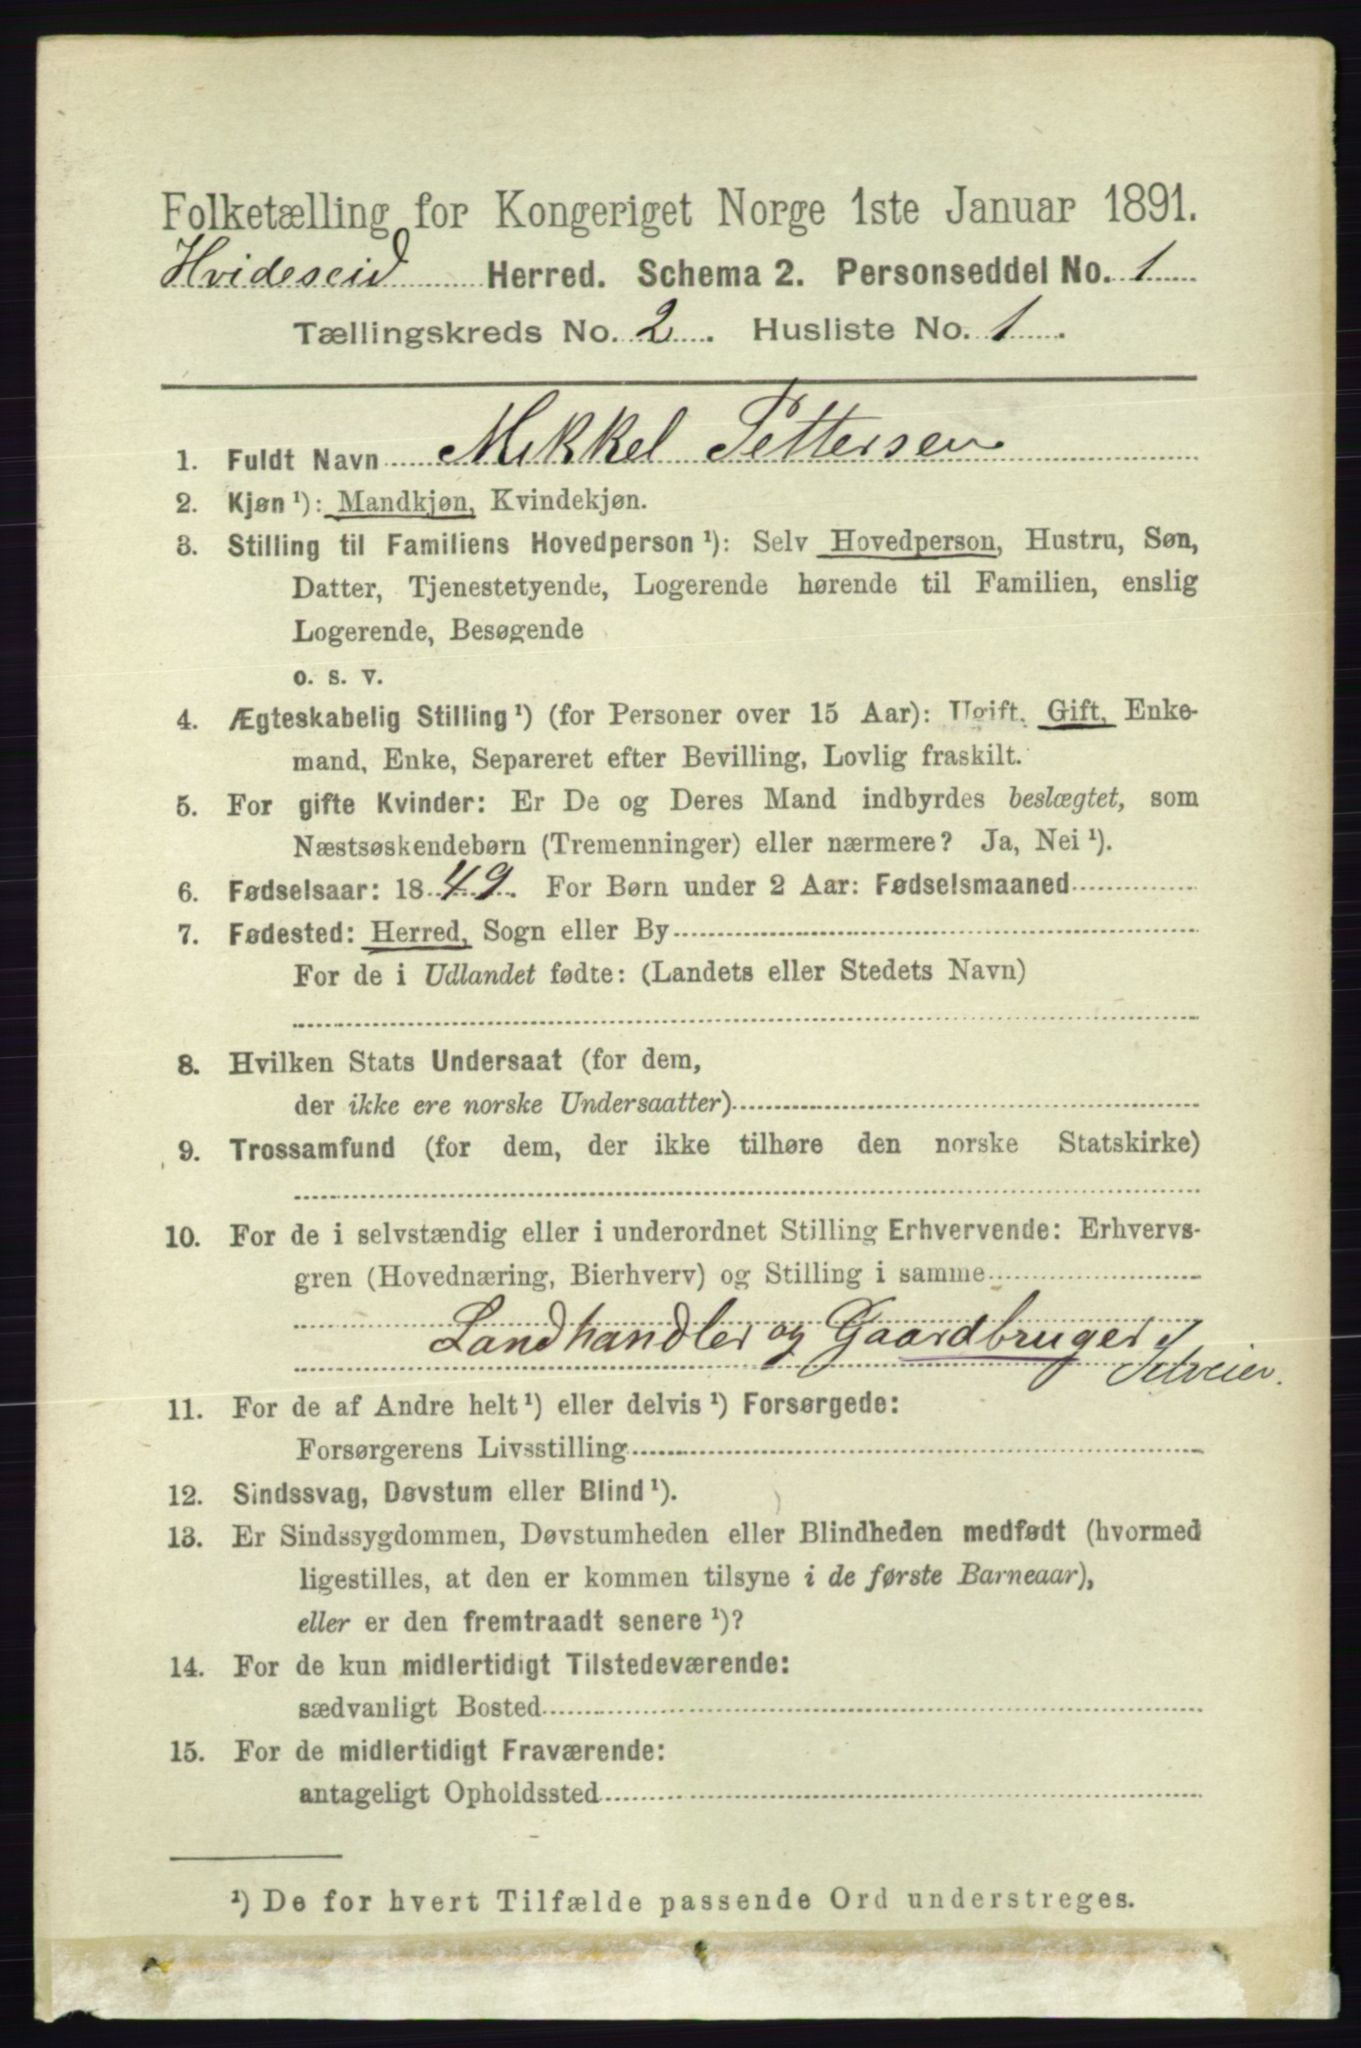 Folketælling for Kongeriget Norge 1ste Januar 1891.
Hvideseid Herred. Schema 2. Personseddel No. 1
Tællingskreds No. 2. Husliste No. 1.
1. Fuldt Navn Mikkel Pettersen
2. Kjøn ¹): Mandkjøn, Kvindekjøn.
3. Stilling til Familiens Hovedperson ¹): Selv Hovedperson, Hustru, Søn,
Datter, Tjenestetyende, Logerende hørende til Familien, enslig
Logerende, Besøgende
o. s. v.
4. Ægteskabelig Stilling ¹) (for Personer over 15 Aar): Ugift, Gift, Enke-
mand, Enke, Separeret efter Bevilling, Lovlig fraskilt.
5. For gifte Kvinder: Er De og Deres Mand indbyrdes beslægtet, som
Næstsøskendebørn (Tremenninger) eller nærmere? Ja, Nei ¹).
6. Fødselsaar: 1849. For Børn under 2 Aar: Fødselsmaaned
7. Fødested: Herred, Sogn eller By
For de i Udlandet fødte: (Landets eller Stedets Navn)
8. Hvilken Stats Undersaat (for dem,
der ikke ere norske Undersaatter)
9. Trossamfund (for dem, der ikke tilhøre den norske Statskirke)
10. For de i selvstændig eller i underordnet Stilling Erhvervende: Erhvervs-
gren (Hovednæring, Bierhverv) og Stilling i samme
Landhandler og Gaardbruger
Selveier.
11. For de af Andre helt ¹) eller delvis ¹) Forsørgede:
Forsørgerens Livsstilling
12. Sindssvag, Døvstum eller Blind ¹).
13. Er Sindssygdommen, Døvstumheden eller Blindheden medfødt (hvormed
ligestilles, at den er kommen tilsyne i de første Barneaar),
eller er den fremtraadt senere ¹)?
14. For de kun midlertidigt Tilstedeværende:
sædvanligt Bosted
15. For de midlertidigt Fraværende:
antageligt Opholdssted
¹) De for hvert Tilfælde passende Ord understreges.